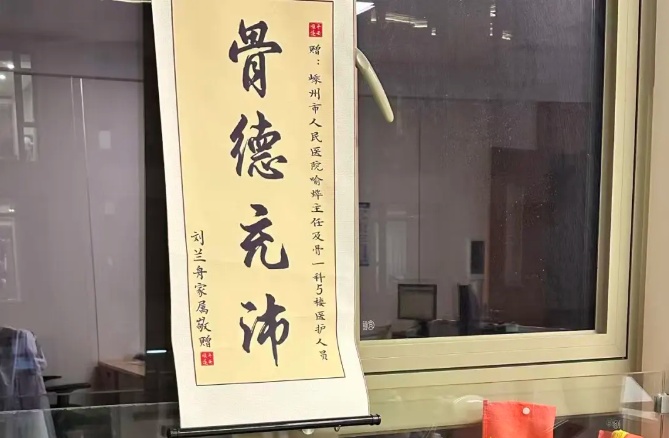 赠：嵊州市人民医院喻烨主任及骨一科5楼医护人员
骨德充沛
刘兰舟家属敬赠